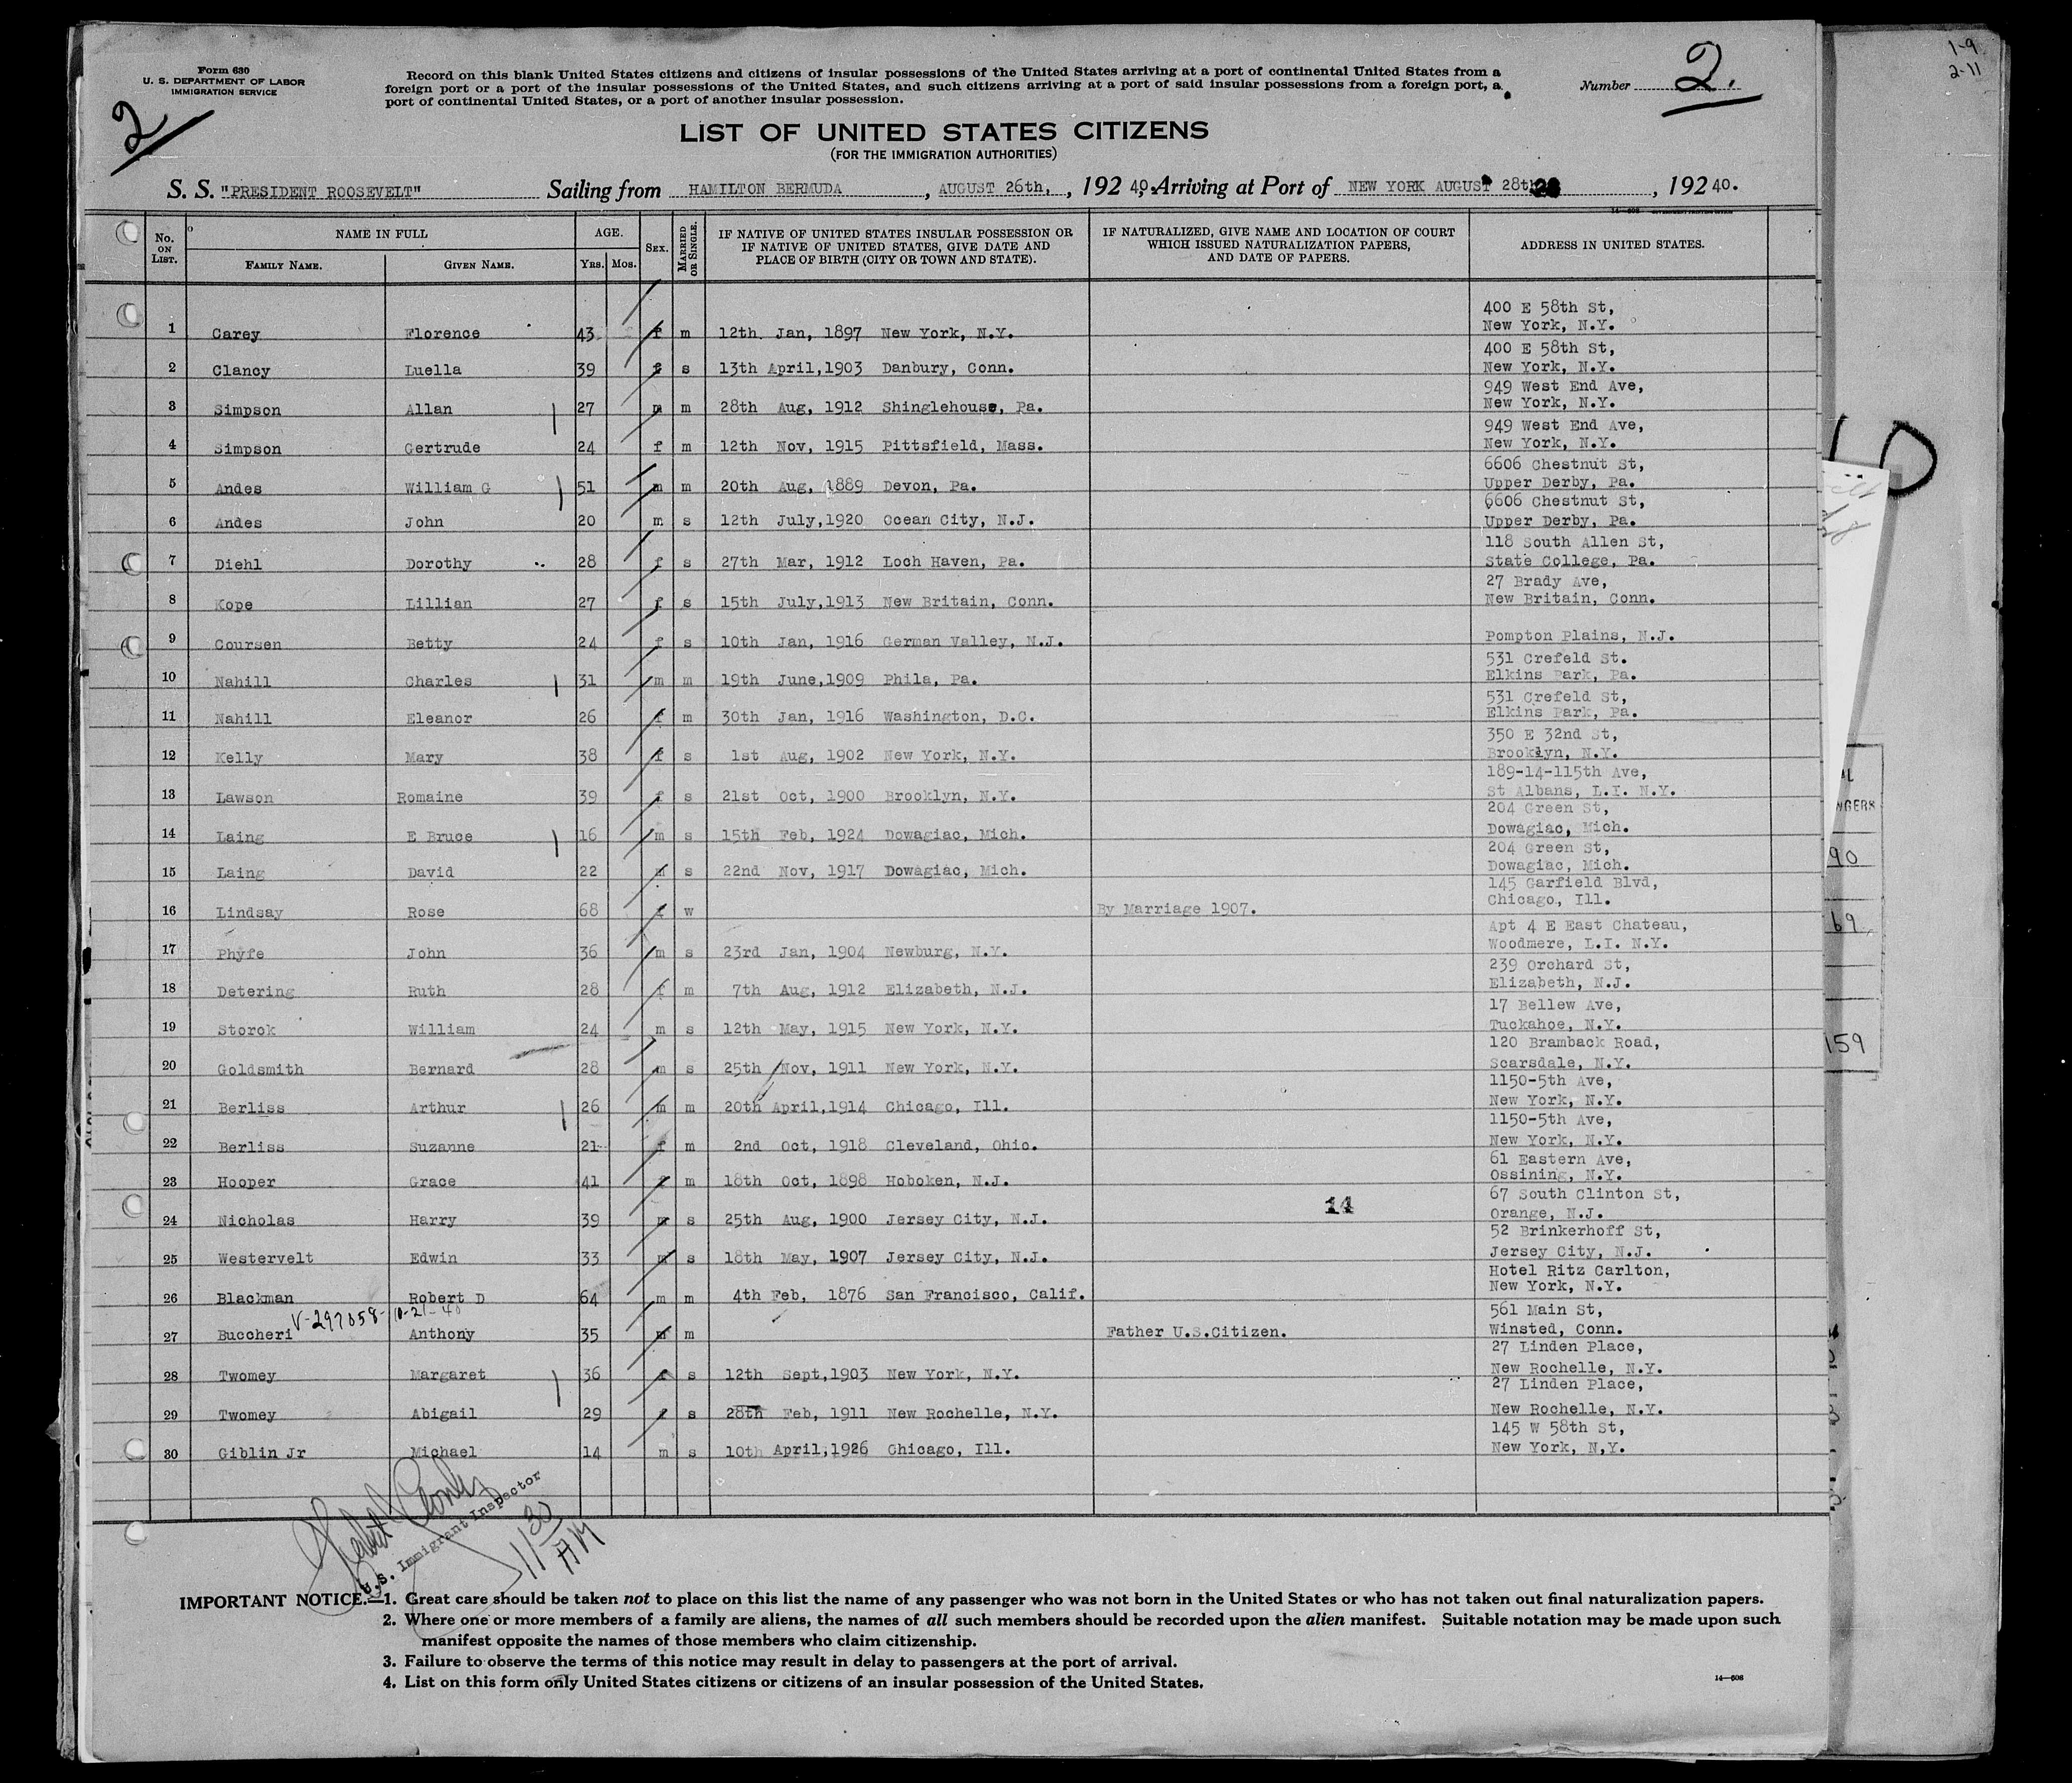 Form 630
U. S. DEPARTMENT OF LABOR
IMMIGRATION SERVICE
2
Record on this blank United States citizens and citizens of insular possessions of the United States arriving at a port of continental United States from a
foreign port or a port of the insular possessions of the United States, and such citizens arriving at a port of said insular possessions from a foreign port, a
port of continental United States, or a port of another insular possession.
Number 2.
1-9
2-11
LIST OF UNITED STATES CITIZENS
(FOR THE IMMIGRATION AUTHORITIES)
S. S. "PRESIDENT ROOSEVELT" Sailing from HAMILTON BERMUDA, AUGUST 26th, , 192 40, Arriving at Port of NEW YORK AUGUST 28th 28, 192 40.
No. ON LIST. NAME IN FULL FAMILY NAME. GIVEN NAME. AGE. YRS. MOS. SEX. MARRIED OR SINGLE. IF NATIVE OF UNITED STATES INSULAR POSSESSION OR IF NATIVE OF UNITED STATES, GIVE DATE AND PLACE OF BIRTH (CITY OR TOWN AND STATE). IF NATURALIZED, GIVE NAME AND LOCATION OF COURT WHICH ISSUED NATURALIZATION PAPERS, AND DATE OF PAPERS. ADDRESS IN UNITED STATES.
400 E 58th St,
1 Carey Florence 43 f m 12th Jan, 1897 New York, N.Y. New York, N.Y.
400 E 58th St,
2 Clancy Luella 39 f s 13th April,1903 Danbury, Conn. New York, N.Y.
949 West End Ave,
3 Simpson Allan 27 m m 28th Aug, 1912 Shinglehouse, Pa. New York, N.Y.
949 West End Ave,
4 Simpson Gertrude 24 f m 12th Nov, 1915 Pittsfield, Mass. New York, N.Y.
6606 Chestnut St,
5 Andes William G 51 m m 20th Aug, 1889 Devon, Pa. Upper Derby, Pa.
6606 Chestnut St,
6 Andes John 20 m s 12th July,1920 Ocean City, N.J. Upper Derby, Pa.
118 South Allen St,
7 Diehl Dorothy 28 f s 27th Mar, 1912 Loch Haven, Pa. State College, Pa.
27 Brady Ave,
8 Kope Lillian 27 f s 15th July,1913 New Britain, Conn. New Britain, Conn.
9 Coursen Betty 24 f s 10th Jan, 1916 German Valley, N.J. Pompton Plains, N.J.
531 Crefeld St.
10 Nahill Charles 31 m m 19th June,1909 Phila, Pa. Elkins Park, Pa.
531 Crefeld St,
11 Nahill Eleanor 26 f m 30th Jan, 1916 Washington, D.C. Elkins Park, Pa.
350 E 32nd St,
12 Kelly Mary 38 f s 1st Aug, 1902 New York, N.Y. Brooklyn, N.Y.
189-14-115th Ave,
13 Lawson Romaine 39 f s 21st Oct, 1900 Brooklyn, N.Y. St Albans, L.I. N.Y.
204 Green St,
14 Laing E Bruce 16 m s 15th Feb, 1924 Dowagiac, Mich. Dowagiac, Mich.
204 Green St,
15 Laing David 22 m s 22nd Nov, 1917 Dowagiac, Mich. Dowagiac, Mich.
145 Garfield Blvd,
16 Lindsay Rose 68 f w By Marriage 1907. Chicago, Ill.
Apt 4 E East Chateau,
17 Phyfe John 36 m s 23rd Jan, 1904 Newburg, N.Y. Woodmere, L.I. N.Y.
239 Orchard St,
18 Detering Ruth 28 f m 7th Aug, 1912 Elizabeth, N.J. Elizabeth, N.J.
17 Bellew Ave,
19 Storck William 24 m s 12th May, 1915 New York, N.Y. Tuckahoe, N.Y.
120 Bramback Road,
20 Goldsmith Bernard 28 m s 25th Nov, 1911 New York, N.Y. Scarsdale, N.Y.
1150-5th Ave,
21 Berliss Arthur 26 m m 20th April,1914 Chicago, Ill. New York, N.Y.
1150-5th Ave,
22 Berliss Suzanne 21 f m 2nd Oct, 1918 Cleveland, Ohio. New York, N.Y.
61 Eastern Ave,
23 Hooper Grace 41 f m 18th Oct, 1898 Hoboken, N.J. Ossining, N.Y.
67 South Clinton St,
24 Nicholas Harry 39 m s 25th Aug, 1900 Jersey City, N.J. 14 Orange, N.J.
52 Brinkerhoff St,
25 Westervelt Edwin 33 m s 18th May, 1907 Jersey City, N.J. Jersey City, N.J.
Hotel Ritz Carlton,
26 Blackman Robert D 64 m m 4th Feb, 1876 San Francisco, Calif. New York, N.Y.
V-297858-10-21-40 561 Main St,
27 Buccheri Anthony 35 m m Father U.S.Citizen. Winsted, Conn.
27 Linden Place,
28 Twomey Margaret 36 f s 12th Sept,1903 New York, N.Y. New Rochelle, N.Y.
27 Linden Place,
29 Twomey Abigail 29 f s 28th Feb, 1911 New Rochelle, N.Y. New Rochelle, N.Y.
145 W 58th St,
30 Giblin Jr Michael 14 m s 10th April,1926 Chicago, Ill. New York, N.Y.
U.S. Immigrant Inspector
11 30 AM
IMPORTANT NOTICE.—1. Great care should be taken not to place on this list the name of any passenger who was not born in the United States or who has not taken out final naturalization papers.
2. Where one or more members of a family are aliens, the names of all such members should be recorded upon the alien manifest. Suitable notation may be made upon such
manifest opposite the names of those members who claim citizenship.
3. Failure to observe the terms of this notice may result in delay to passengers at the port of arrival.
4. List on this form only United States citizens or citizens of an insular possession of the United States.
14—608
NGERS
90
69
159